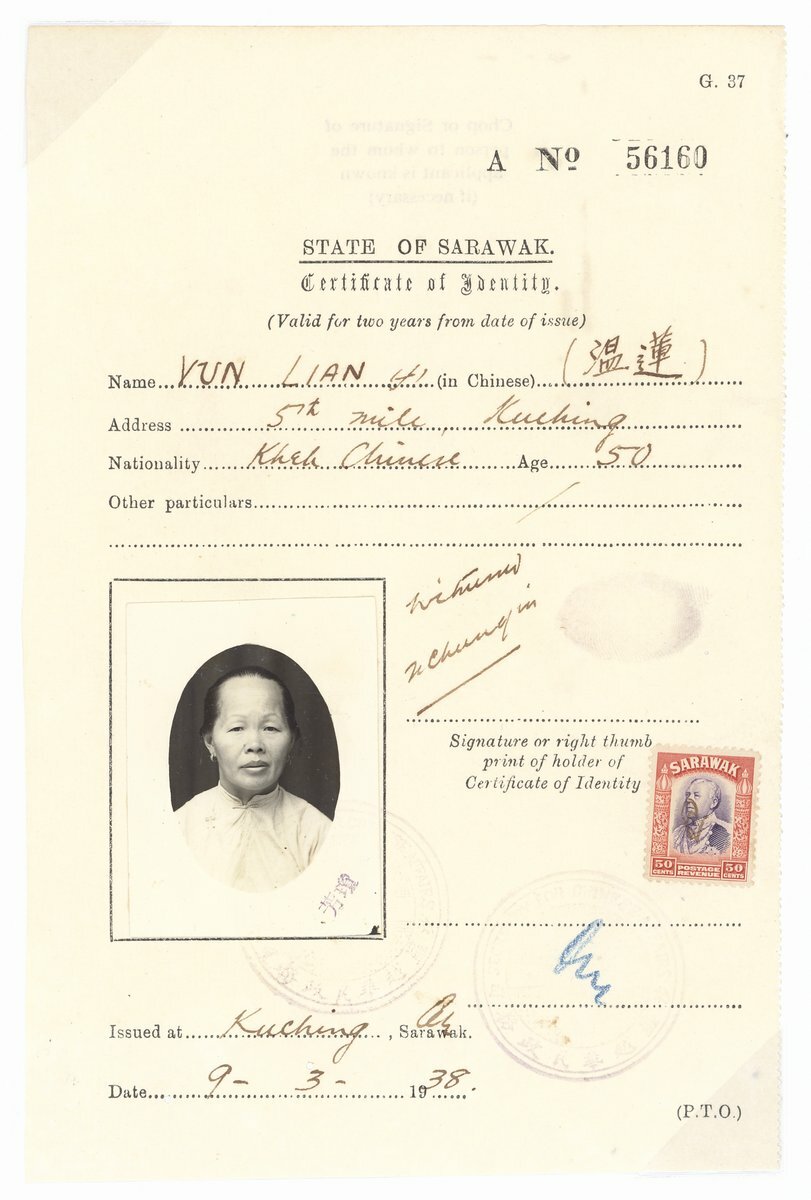 G. 37
A No 56160
STATE OF SARAWAK.
Certificate of Identity.
(Valid for two years from date of issue)
Name... VUN LIAN (f) (in Chinese)... (温蓮)
Address ... 5th mile, Kuching
Nationality... Kheh Chinese ... Age... 50
Other particulars...
witness
Signature or right thumb
print of holder of
Certificate of Identity
SARAWAK
50 CENTS POSTAGE REVENUE 50 CENTS
Issued at... Kuching..., Sarawak.
Date... 9 - 3 - 1938.
(P.T.O.)